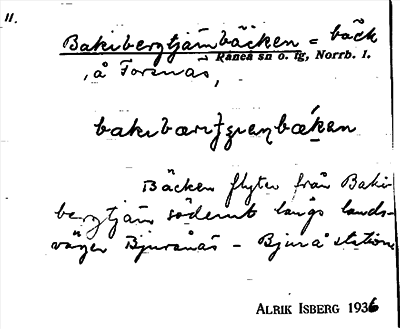 11.
Bakibergtjärnbäcken = bäck
Råneå sn o. tg, Norrb. l.
å Forsnäs,
Bäcken flyter från Baki-
bergtjärn söderut längs lands-
vägen Bjurånäs - Bjurå station
ALRIK ISBERG 1936